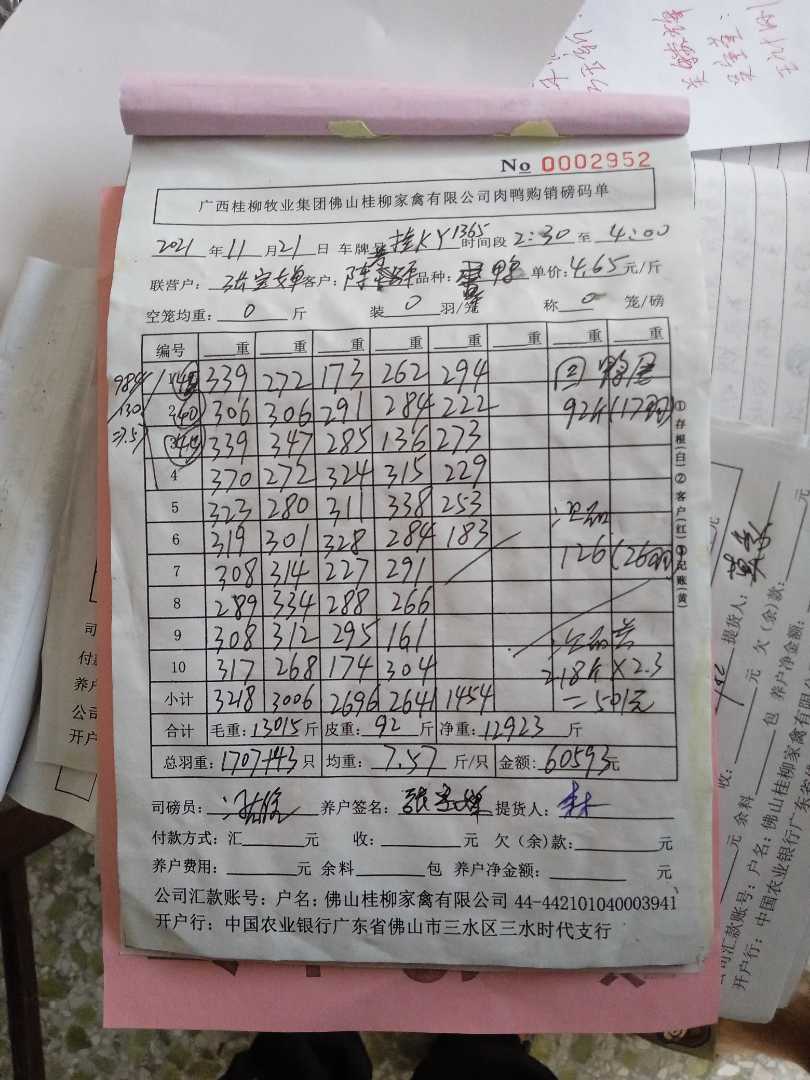 No 0002952
广西桂柳牧业集团佛山桂柳家禽有限公司肉鸭购销磅码单
2021年11月21日 车牌号 桂KY1365 时间段 2:30 至 4:00
联营户： 客户：陈 品种： 鸭 单价：4.65元/斤
空笼均重：0斤 装0羽/笼 称0笼/磅
编号 重 重 重 重 重 重 重 重
984 1 40 339 272 173 262 294
130 2 40 306 306 291 284 222 92斤(17羽)
=7.57 3 339 347 285 136 273
4 370 272 324 315 229
5 323 280 311 338 253
6 319 301 328 284 183
7 308 314 227 291 126(26羽)
8 289 334 288 266
9 308 312 295 161
10 317 268 174 304 218斤×2.3
小计 3218 3006 2696 2641 1454 =501元
合计 毛重：13015斤 皮重：92斤 净重：12923斤
总羽重：1707+43只 均重：7.57斤/只 金额：60593元
司磅员： 养户签名： 提货人：
付款方式：汇 元 收： 元 欠（余）款： 元
养户费用： 元 余料 包 养户净金额： 元
公司汇款账号：户名：佛山桂柳家禽有限公司 44-442101040003941
开户行：中国农业银行广东省佛山市三水区三水时代支行
①存根(白)②客户(红)③记账(黄)
司
付款
养户
公司
开户
提货人：
元 欠（余）款： 元
收：
元 余料 包 养户净金额：
公司汇款账号：户名：佛山桂柳家禽有限公
开户行：中国农业银行广东省佛